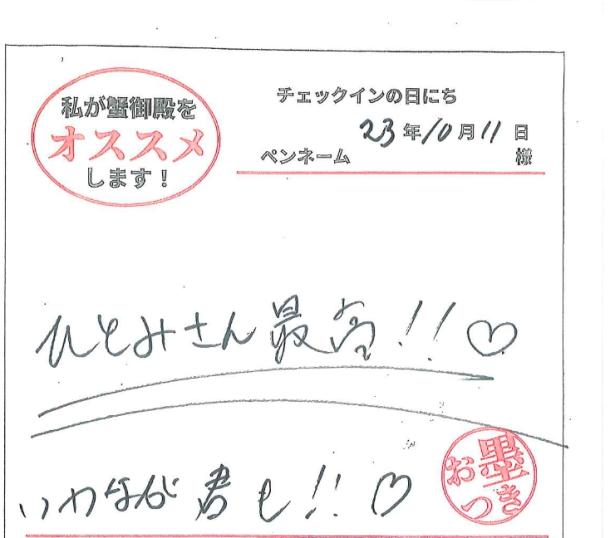 私が蟹御殿を
オススメ
します！
チェックインの日にち
23年10月11日
ペンネーム 様
ひとみさん最高!!♡
いわなが君も!!♡
お墨つき